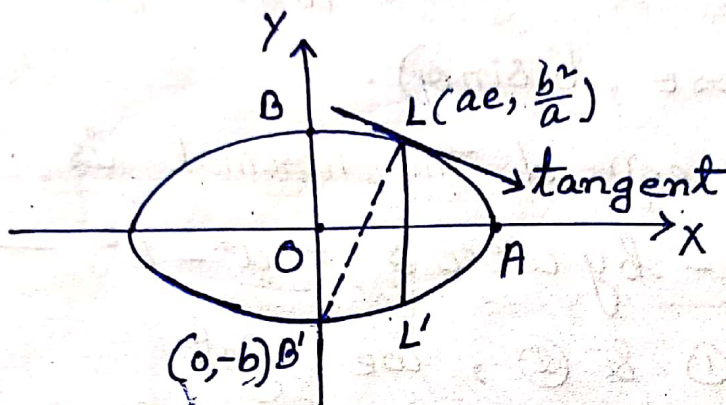 Y
B
L(ae, b²/a)
tangent
O
A
X
(0,-b) B'
L'